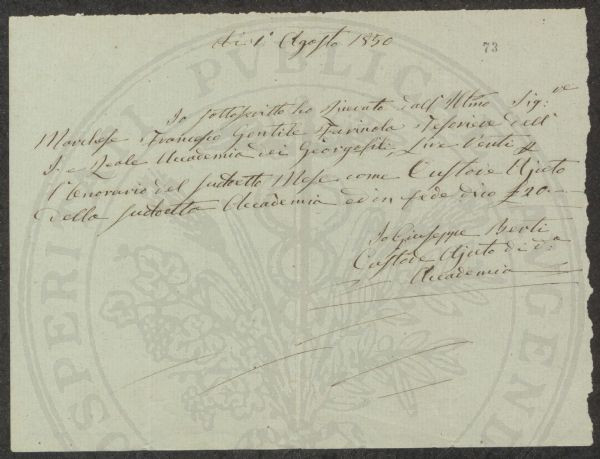 Ai 1° Agosto 1850
73
Io sottoscritto ho ricevuto dall' Illmo Sig:re
Marchese Francesco Gentile Farinola Tesoriere dell'
I. e Reale Accademia dei Georgofili Lire Venti p
l'onorario del sudetto Mese come Custode Ajuto
della sudetta Accademia ed in fede dico £ 20.—
Io Giuseppe Berti
Custode Ajuto di d.a
Accademia
PROSPERITÀ PUBLICA AUGENDA